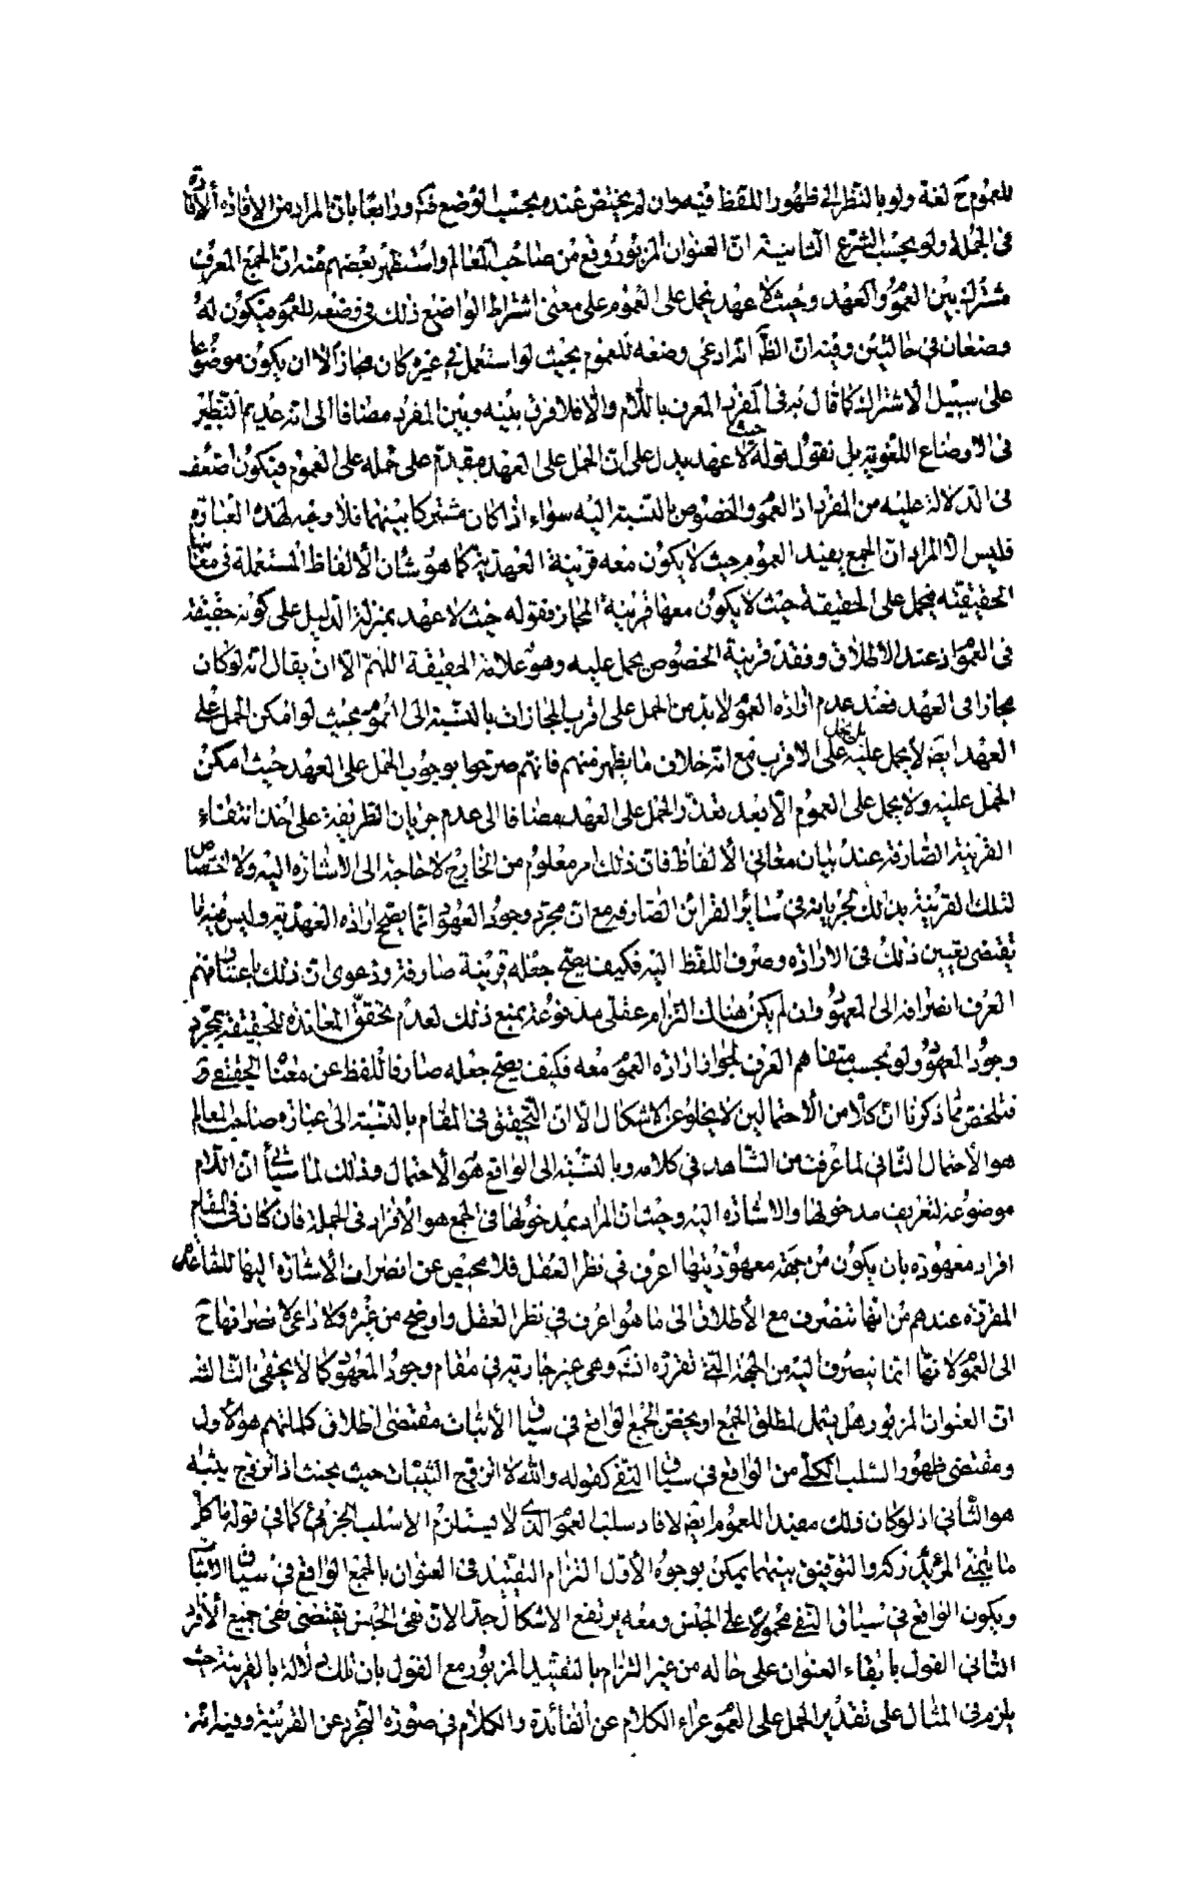 للعموم ح لغة ولو بالنظر الى ظهور اللفظ فيه وان لم يختص عنده بحسب الوضع فيه ورابعا بان المراد من الافادة الافادة
فى الجملة ولو بحسب الشرع الثانية ان العنوان المزبور وقع من صاحب المعالم واستظهر بعضهم منه ان الجمع المعرف
مشترك بين العموم والعهد وحيث لا عهد يحمل على العموم على معنى اشتراط الواضع ذلك فى وضعه للعموم فيكون له
وضعان فى حالتين وفيه ان الظ انه ادعى وضعه للعموم بحيث لو استعمل فى غيره كان مجازا لا ان يكون موضوعا
على سبيل الاشتراك كما قال به فى المفرد المعرف باللام والا فلا فرق بينه وبين المفرد مضافا الى انه عديم النظير
فى الاوضاع اللغوية بل نقول قوله حيث لا عهد يدل على ان الحمل على العهد مقدم على حمله على العموم فيكون اضعف
فى الدلالة عليه من المفرد اذ العموم والخصوص بالنسبة اليه سواء اذا كان مشتركا بينهما فلا وجه لهذه العبارة
فليس الا المراد ان الجمع يفيد العموم حيث لا يكون معه قرينة العهدية كما هو شان الالفاظ المستعملة فى معانيها
الحقيقية فيحمل على الحقيقة حيث لا يكون معها قرينة المجاز فقوله حيث لا عهد بمنزلة الدليل على كونه حقيقة
فى العموم اذ عند الاطلاق وفقد قرينة الخصوص يحمل عليه وهو علامة الحقيقة اللهم الا ان يقال انه لو كان
مجازا فى العهد فعند عدم ارادة العموم لا بد من الحمل على اقرب المجازات بالنسبة الى العموم بحيث لو امكن الحمل على
العهد ايض لا يحمل عليه بل يحمل على الاقرب فمع انه خلاف ما يظهر منهم فانهم صرحوا بوجوب الحمل على العهد حيث امكن
الحمل عليه ولا يحمل على العموم الا بعد تعذر الحمل على العهد مضافا الى عدم جريان الطريقة على اخذ انتفاء
القرينة الصارفة عند بيان معانى الالفاظ فان ذلك امر معلوم من الخارج لا حاجة الى الاشارة اليه ولا اختصاص
لتلك القرينة بذلك لجريانه فى سائر القرائن الصارفة مع ان مجرد وجود العهد انما يصحح ارادة العهدية وليس فيه ما
يقتضى تعيين ذلك فى الارادة وصرف اللفظ اليه فكيف يصح جعله قرينة صارفة ودعوى ان ذلك باعتبار فهم
العرف انصرافه الى المعهود وان لم يكن هناك التزام عقلى مدفوعة بمنع ذلك لعدم تحقق المعاندة للحقيقة بمجرد
وجود المعهود ولو بحسب متفاهم العرف لجواز ارادة العموم معه فكيف يصح جعله صارفا للفظ عن معناه الحقيقى قد
فتلخص مما ذكرنا ان كلا من الاحتمالين لا يخلو عن الاشكال الا ان التحقيق فى المقام بالنسبة الى عبارة صاحب المعالم
هو الاحتمال الثانى لما عرفت من الشاهد فى كلامه وبالنسبة الى الواقع هو الاحتمال وذلك لما سيأتى ان اللام
موضوعة لتعريف مدخولها والاشارة اليه وحيث ان المراد بمدخولها فى الجمع هو الافراد فى الجملة فان كانت فى المقام
افراد معهودة بان يكون من جهة معهوديتها اعرف فى نظر العقل فلا محيص عن انصراف الاشارة اليها للقاعدة
المقررة عندهم من انها تنصرف مع الاطلاق الى ما هو اعرف فى نظر العقل واوضح من غيره ولا داعى لانصرافها ح
الى العموم لانها انما ينصرف اليه من الجهة التى تقررة انش وهى غير جارية فى مقام وجود المعهود كما لا يخفى الثالثة
ان العنوان المزبور هل يشمل لمطلق الجمع او يختص بالجمع الواقع فى سياق الاثبات مقتضى اطلاق كلماتهم هو الاول
ومقتضى ظهور السلب الكلى من الواقع فى سياق النفى كقوله والله لا اتزوج الثيبات حيث يحنث اذا تزوج بثيبة
هو الثانى اذ لو كان ذلك مفيدا للعموم ايض لافاد سلب العموم الذى لا يستلزم الا سلب الجزئى كما فى قوله ما كل
ما يتمنى المرء يدركه والتوفيق بينهما يمكن بوجوه الاول التزام التقييد فى العنوان بالجمع الواقع فى سياق الاثبات
ويكون الواقع فى سياق النفى محمولا على الجنس ومعه يرتفع الاشكال جدا لان نفى الجنس يقتضى نفى جميع الافراد
الثانى القول بابقاء العنوان على حاله من غير التزام بالتقييد المزبور مع القول بان تلك دلالة بالقرينة حيث
يلزم فى المثال على تقدير الحمل على العموم عراء الكلام عن الفائدة والكلام فى صورة التجرد عن القرينة وفيه انه